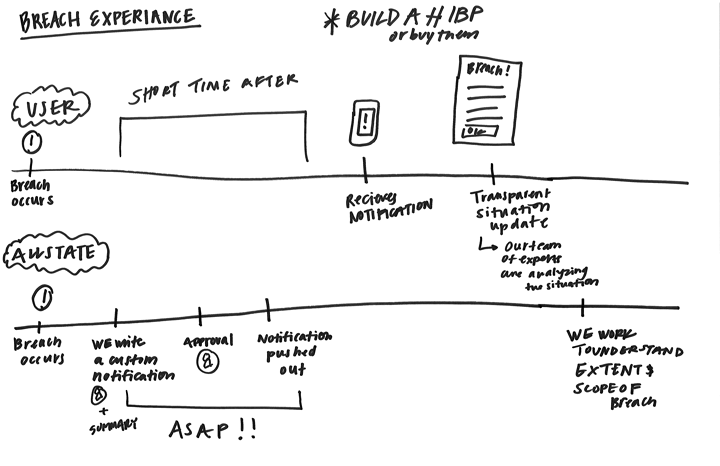 BREACH EXPERIANCE
* BUILD A HIBP
or buy them
USER
SHORT TIME AFTER
!
!
Breach!
LOCK
Breach
occurs
Recieves
NOTIFICATION
Transparent
situation
update
↳ Our team
of experts
are analyzing
the situation
ALLSTATE
!
Breach
occurs
WE write
a custom
notification
+
SUMMARY
Approval
Notification
pushed
out
ASAP!!
WE WORK
TO UNDERSTAND
EXTENT &
SCOPE OF
Breach